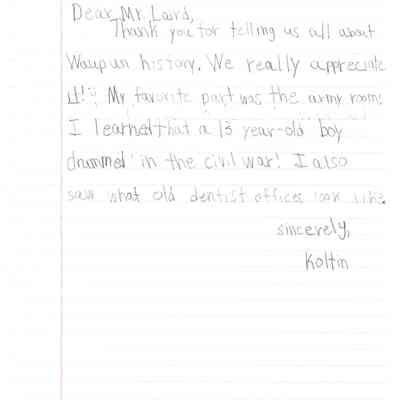 Dear Mr. Laird,
Thank you for telling us all about
Waupun history. We really appreciate
it! My favorite part was the army room!
I learned that a 13 year-old boy
drummed in the civil war! I also
saw what old dentist offices look like.
sincerely,
Koltin